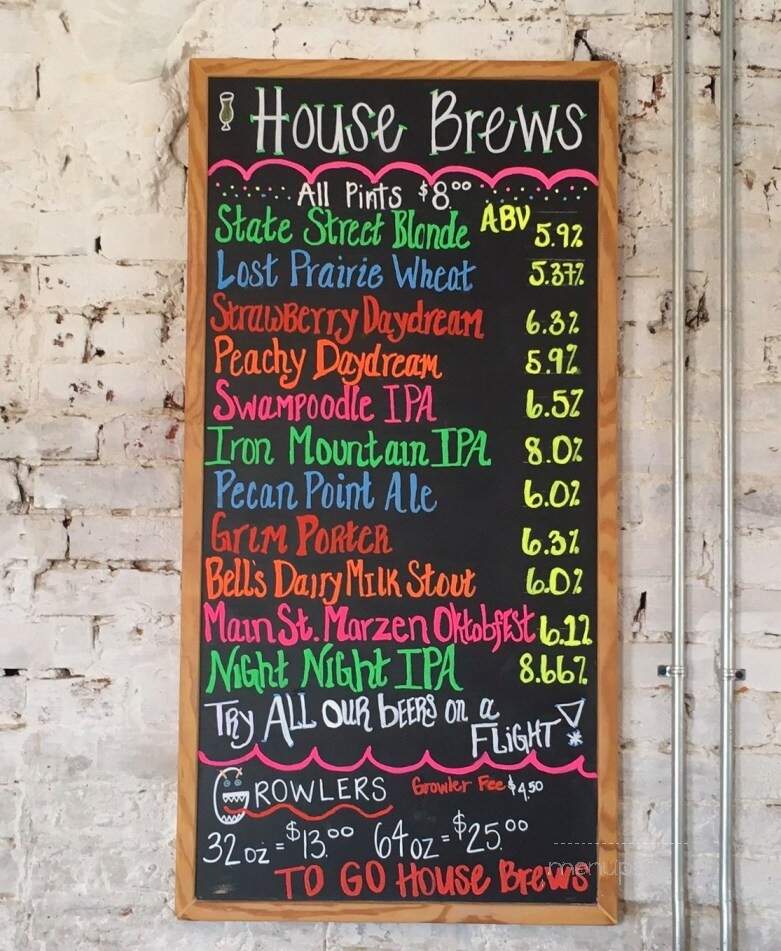 House Brews
All Pints $8.00
State Street Blonde ABV 5.9%
Lost Prairie Wheat 5.37%
Strawberry Daydream 6.3%
Peachy Daydream 5.9%
Swampoodle IPA 6.5%
Iron Mountain IPA 8.0%
Pecan Point Ale 6.0%
Grim Porter 6.3%
Bell's Dairy Milk Stout 6.0%
Main St. Marzen Oktobfest 6.1%
Night Night IPA 8.66%
Try ALL our beers on a
FLiGHT!
GROWLERS Growler Fee $4.50
32 oz = $13.00 64 oz = $25.00
TO GO House Brews
menupix